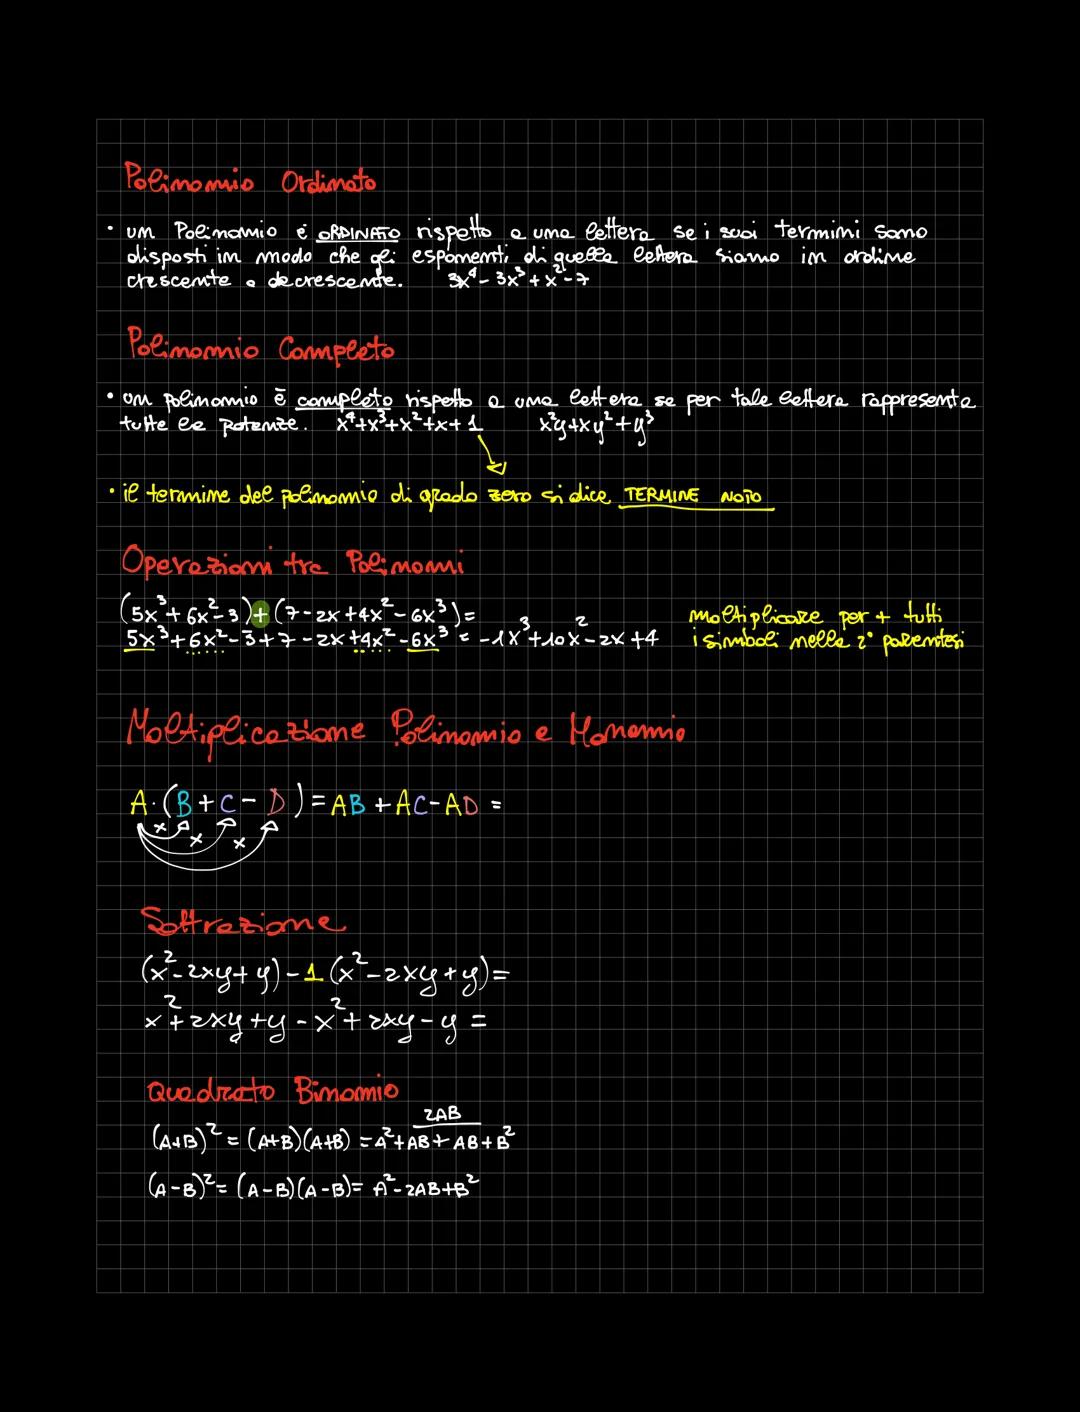 Polinomio Ordinato
• un Polinomio è ORDINATO rispetto a una lettera se i suoi termini sono
disposti in modo che gli esponenti di quella lettera siano in ordine
crescente o decrescente. 3x⁴ - 3x³ + x² - 7
Polinomio Completo
• un polinomio è completo rispetto a una lettera se per tale lettera rappresenta
tutte le potenze. x⁴+x³+x²+x+1 x²y+xy²+y³
• il termine del polinomio di grado zero si dice TERMINE NOTO
Operazioni tra Polinomi
(5x³+6x²-3)+(7-2x+4x²-6x³)=
5x³+6x²-3+7-2x+4x²-6x³ = -1x³+10x²-2x+4
moltiplicare per + tutti
i simboli nella 2° parentesi
Moltiplicazione Polinomio e Monomio
A·(B+C-D)=AB+AC-AD=
x x x
Sottrazione
(x²-2xy+y)-1(x²-2xy+y)=
x²+2xy+y-x²+2xy-y=
Quadrato Binomio
2AB
(A+B)²=(A+B)(A+B)=A²+AB+AB+B²
(A-B)²=(A-B)(A-B)=A²-2AB+B²